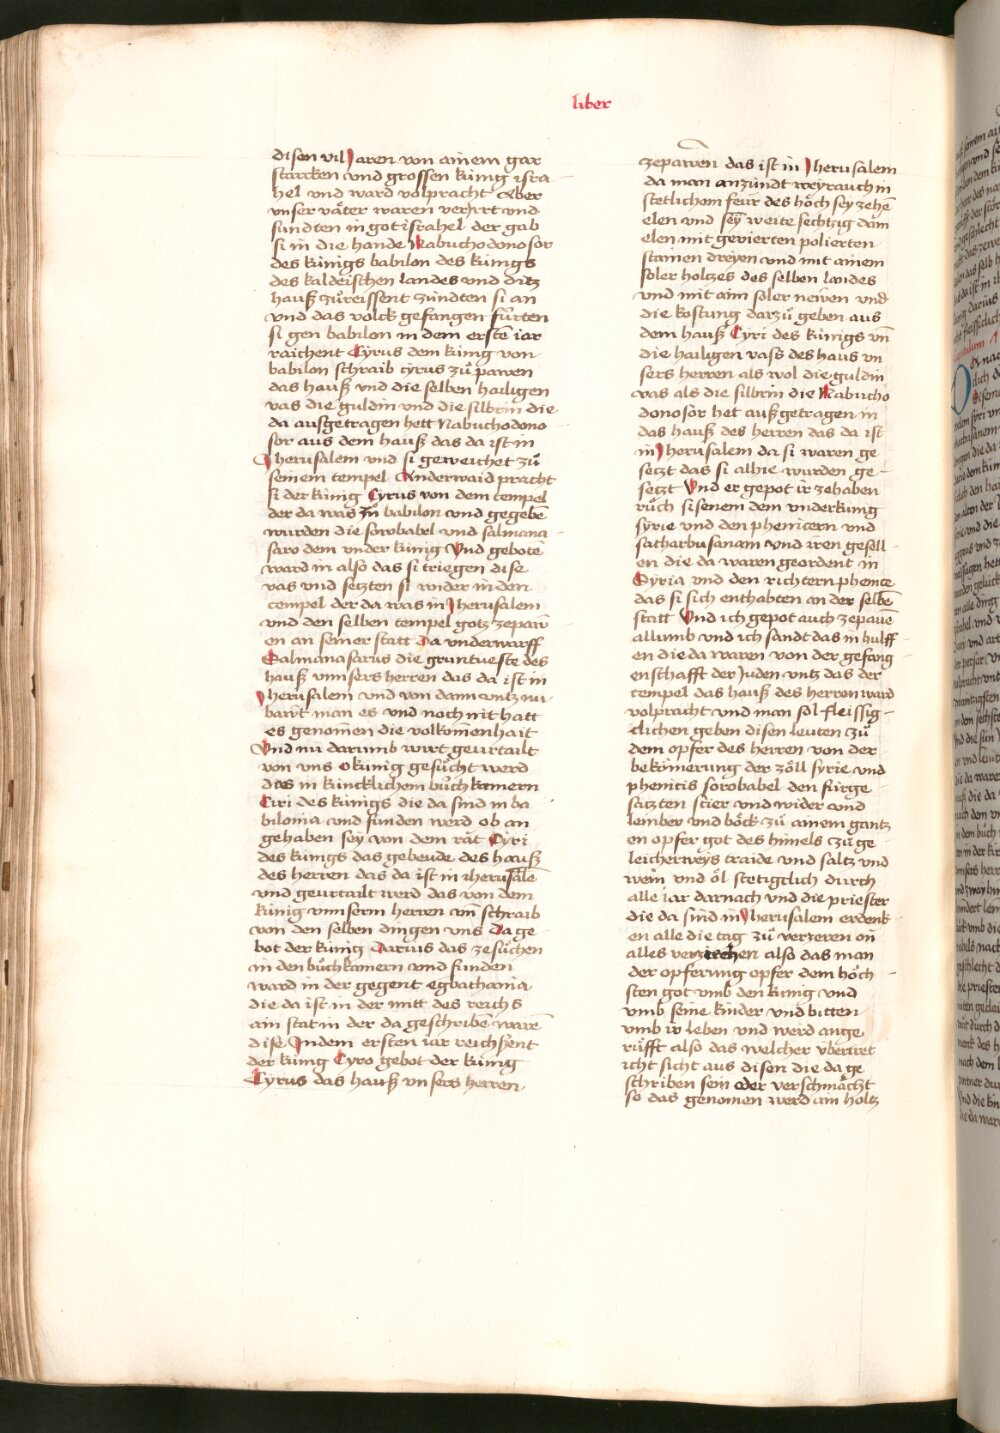 liber
disen vil Jaren von ainem gar
starcken vnd grossen künig isra
hel vnd ward volpracht Aber
vnser väter waren verirrt vnd
sundten in got israhel der gab
si in die hande Nabuchodonosor
des künigs babilon des künigs
des kaldeischen landes vnd ditz
hauß zůreissent zündten si an
vnd das volck gefangen fůrten
si gen babilon in dem erstē iar
raichent Cyrus dem künig von
babilon schraib cyrus zů pawen
das hauß vnd die selben hailigen
vas die guldin vnd die silbrin die
da außgetragen hett Nabuchodono
sor aus dem hauß das da ist in
Jherusalem vnd si geweichet zů
seinem tempel Anderwaid pracht
si der künig Cyrus von dem tempel
der da was zů babilon vnd gegebē
wurden die sorobabel vnd salmana
saro dem vnder künig Vnd gebote
ward in also das si triegen dise
vas vnd setzten si wider in den
tempel der da was in Jherusalem
vnd den selben tempel gotz zepaw̄
en an seiner statt Da vnderwarff
Salmanasarus die gruntueste des
hauß vnnsers herren das da ist in
Jherusalem vnd von dann vntz nu
bawt man es vnd noch nit hatt
es genomen die volkōmenhait
Vnd nu darumb wirt geurtailt
von vns o künig gesůcht werd
das in künicklichem bůch kamern
Ciri des künigs die da sind in ba
bilonia vnd funden werd ob an
gehaben sey von dem rät Cyri
des künigs das gebeude des hauß
des herren das da ist in iherusalē
vnd geurtailt werd das von dem
künig vnnserm herren vn̄ schraib
von den selben dingen vns Da ge
bot der künig Darius das zesůchen
in den bůchkamern vnd funden
ward in der gegent egbathania
die da ist in der mitt des reichs
ain stat in der da geschribē warē
dise Indem ersten iar reichsent
der künig Cyro gebot der künig
Cyrus das hauß vnsers herren
zepawen das ist in Jherusalem
da man anzündt weyrauch in
stetlichem feür des höch sey zehē
elen vnd sey weite sechtzig dam
elen mit gevierten polierten
stainen dreyen vnd mit ainem
soler holtzes des selben landes
vnd mit aim soler newen vnd
die kostung darzů geben aus
dem hauß Cyri des künigs vn̄
die hailigen vass des haus vn
sers herren als wol die guldin
vas als die silbrin die Nabucho
donosor het außgetragen in
das hauß des herren das da ist
in Jherusalem da si waren ge
setzt das si alhie wurden ge
setzt Vnd er gepot ir zehaben
růch sisenem dem vnderkung
syrie vnd den phenicern vnd
satharbusanam vnd iren gesell
en die da waren geordent in
Syria vnd den richtern phenice
das si sich enthabten an der selbē
statt Vnd ich gepot auch zepauē
allumb vnd ich sandt das in hulff
en die da waren von der gefang
enschafft der Juden vntz das der
tempel das hauß des herren ward
volpracht vnd man sol fleissig
clichen geben disen leuten zů
dem opfer des herren von der
bekm̄erung der zöll syrie vnd
phenitis sorobabel den fürge
satzten stier vnd wider vnd
lember vnd böck zů ainem gantz
en opfer got des himels Czů ge
leicherweys traide vnd saltz vnd
wein vnd öl stetigclich durch
alle iar darnach vnd die priester
die da sind in Jherusalem erdenk
en alle die tag zů verzeren on
alles verziechen also das man
der opferung opfer dem höch
sten got vmb den künig vnd
vmb seine kinder vnd bitten
vmb ir leben vnd werd ange
rüfft also das welcher vbertret
icht sicht aus disen die da ge
schriben sein oder verschmächt
so das genomen werd ain holtz